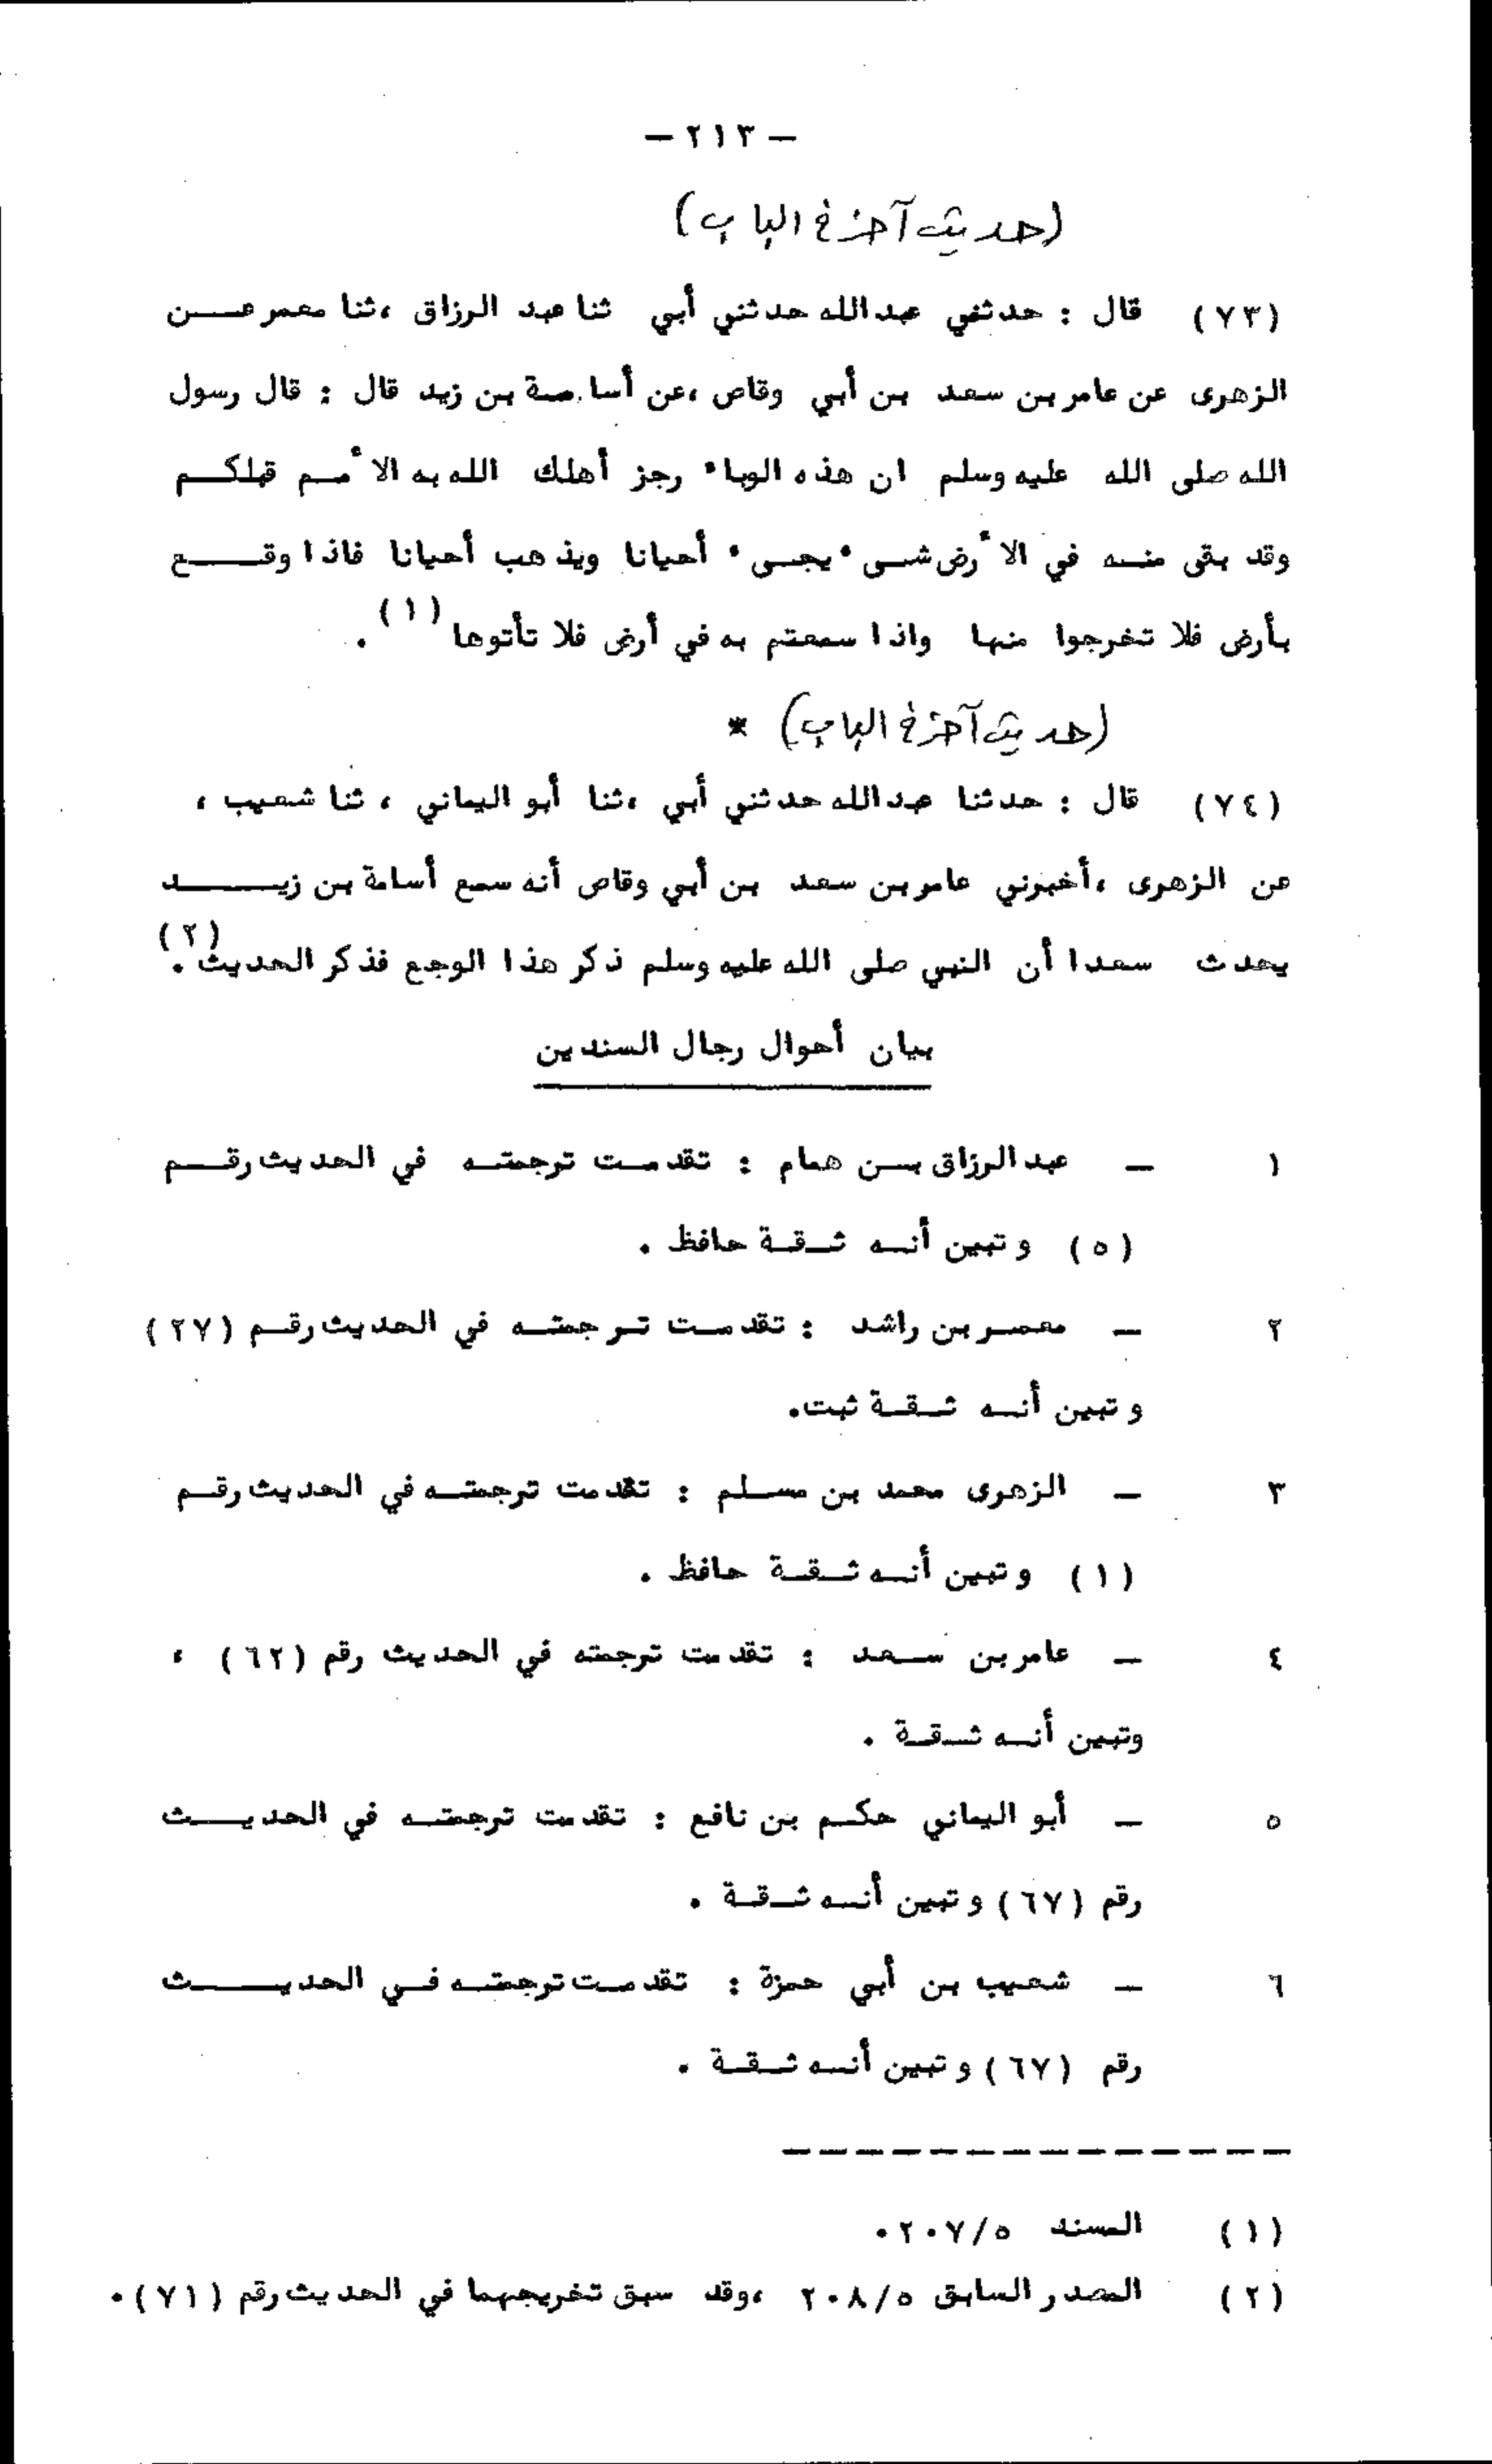 - ٢١٣ -
(حديث آخر في الباب)
(٧٣) قال : حدثني عبدالله حدثني أبي ثنا عبد الرزاق ،ثنا معمر عن
الزهرى عن عامر بن سعد بن أبي وقاص ،عن أسامة بن زيد قال : قال رسول
الله صلى الله عليه وسلم ان هذه الوباء رجز أهلك الله به الأمم قبلكم
وقد بقى منه في الأرض شىء يجىء أحيانا ويذهب أحيانا فاذا وقع
بأرض فلا تخرجوا منها واذا سمعتم به في أرض فلا تأتوها (١) .
(حديث آخر في الباب) *
(٧٤) قال : حدثنا عبدالله حدثني أبي ،ثنا أبو اليماني ، ثنا شعيب ،
عن الزهرى ،أخبرني عامر بن سعد بن أبي وقاص أنه سمع أسامة بن زيد
يحدث سعدا أن النبي صلى الله عليه وسلم ذكر هذا الوجع فذكر الحديث (٢) .
بيان أحوال رجال السندين
١ - عبدالرزاق بن همام : تقدمت ترجمته في الحديث رقم
(٥) وتبين أنه ثقة حافظ .
٢ - معمر بن راشد : تقدمت ترجمته في الحديث رقم (٢٧)
وتبين أنه ثقة ثبت.
٣ - الزهرى محمد بن مسلم : تقدمت ترجمته في الحديث رقم
(١) وتبين أنه ثقة حافظ .
٤ - عامر بن سعد : تقدمت ترجمته في الحديث رقم (٦٢) ،
وتبين أنه ثقة .
٥ - أبو اليماني حكم بن نافع : تقدمت ترجمته في الحديث
رقم (٦٧) وتبين أنه ثقة .
٦ - شعيب بن أبي حمزة : تقدمت ترجمته في الحديث
رقم (٦٧) وتبين أنه ثقة .
(١) المسند ٢٠٧/٥.
(٢) المصدر السابق ٢٠٨/٥ ،وقد سبق تخريجهما في الحديث رقم (٧١).